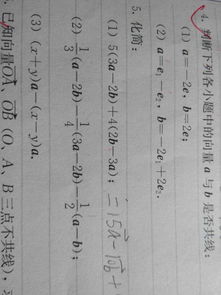 4. 判断下列各小题中的向量 a 与 b 是否共线：
(1) a=-2e, b=2e;
(2) a=e₁-e₂, b=-2e₁+2e₂.
5. 化简：
(1) 5(3a-2b)+4(2b-3a); =15a-10b+
(2) 1/3(a-2b)-1/4(3a-2b)-1/2(a-b);
(3) (x+y)a-(x-y)a.
已知向量OA, OB (O, A, B 三点不共线),